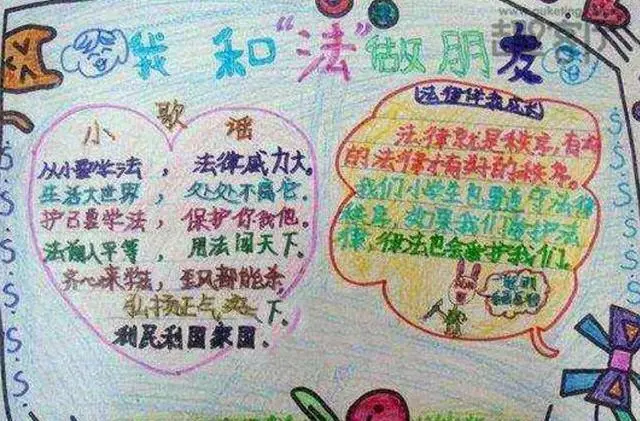 我和“法”做朋友
小歌谣
从小要学法，法律威力大。
生活大世界，处处不离它。
护己要学法，保护你我他。
法前人平等，用法闯天下。
齐心来学法，歪风都能杀
弘扬正气 下.
利民利国家国.
法律伴我成长
法律就是秩序,有好
的法律才有好的秩序。
我们小学生也要遵守法律
如果我们保护法
律,律法也会保护我们。